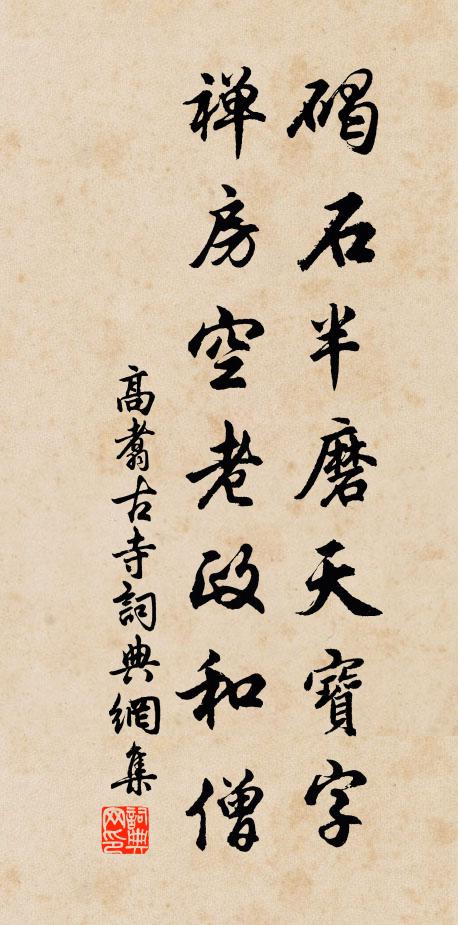 碣石半磨天寶字
禅房空老政和僧
高翥古寺詞典網集
詞典网印